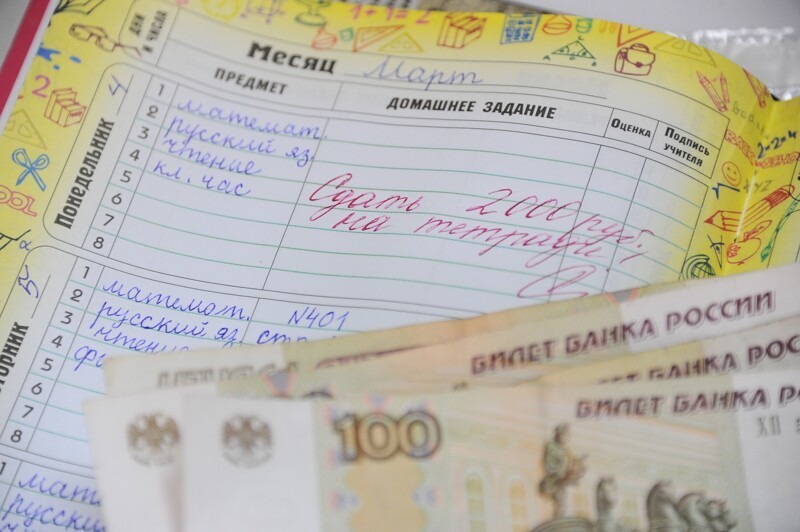 1+1=2
ДНИ И ЧИСЛА
Месяц Март
ПРЕДМЕТ ДОМАШНЕЕ ЗАДАНИЕ Оценка Подпись учителя
Понедельник 4
1 математ.
2 русский яз.
3 чтение
4 кл. час
5
6
7
8
Сдать 2000 руб.
на тетради!
5
1 математ. №401
2 русский яз. стр
3 чтение
4
5
6
7
8
1 матем
русски
БИЛЕТ БАНКА РОССИИ
БИЛЕТ БАНКА РОС
БИЛЕТ БАНКА
100